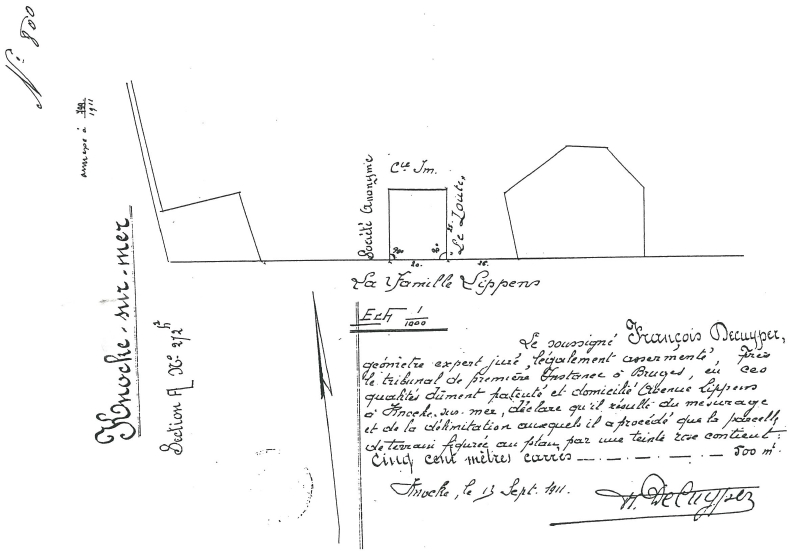 N° 800
annexé à
1911
Knocke-sur-mer
Section A N° 272
Société Anonyme
Cie Im.
Le Zoute
90°
90°
20.
25.
25.
La Famille Lippens
Ech 1/1000
Le soussigné François Decuyper,
géomètre expert juré, légalement assermenté, près
le tribunal de première Instance à Bruges, en ces
qualités dûment patenté et domicilié Avenue Lippens
à Knocke-sur-mer, déclare qu'il résulte du mesurage
et de la délimitation auxquels il a procédé que la parcelle
de terrain figurée au plan par une teinte rose contient :
Cinq cent mètres carrés 500 m².
Knocke, le 13 Sept. 1911.
Decuyper